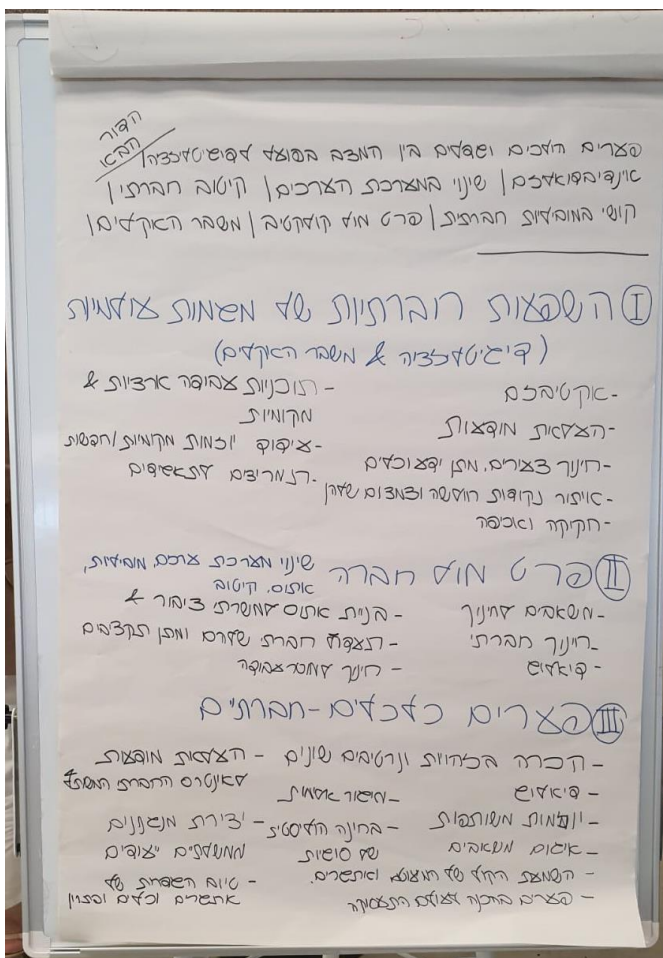 הדור
הבא
פערים הולכים וגדלים בין המצב בפועל לדיגיטליזציה|
אינדיבידואליזם| שינוי במערכת הערכים| קיטוב חברתי|
קושי במוביליות חברתית| פרט מול קולקטיב| משבר האקלים|
I השפעות חברתיות של מגמות עולמיות
(דיגיטליזציה & משבר האקלים)
-אקטיביזם
-העלאת מודעות
-חינוך צעירים, מתן ידע וכלים
-איתור נקודות חולשה וצמצום שלהן
-חקיקה ואכיפה
-תוכניות עבודה ארציות &
מקומיות
-עידוד יוזמות מקומיות/חדשות
-תמריצים לתאגידים
II פרט מול חברה
שינוי מערכת ערכים, מוביליות,
אתוס, קיטוב
-משאבים לחינוך
-חינוך חברתי
-דיאלוג
-בניית אתוס למשרת ציבור &
-תעדוף חברתי שלהם ומתן תקציבים
-חינוך לעבודה
III פערים כלכלים-חברתים
-הכרה בזהויות ונרטיבים שונים
-דיאלוג
-יוזמות משותפות
-איגום משאבים
-השמעת הקול של המיעוט ואתגרים.
-פערים בהכנה לעולם התעסוקה
-מישור אלימות
-בחינה הוליסטית
של סוגיות
-העלאת מודעות
לאינטרס החברתי המשותף
-יצירת מנגנונים
ממשלתיים יעודים
-טיוב השפות של
אתגרים וכלים ופתרון